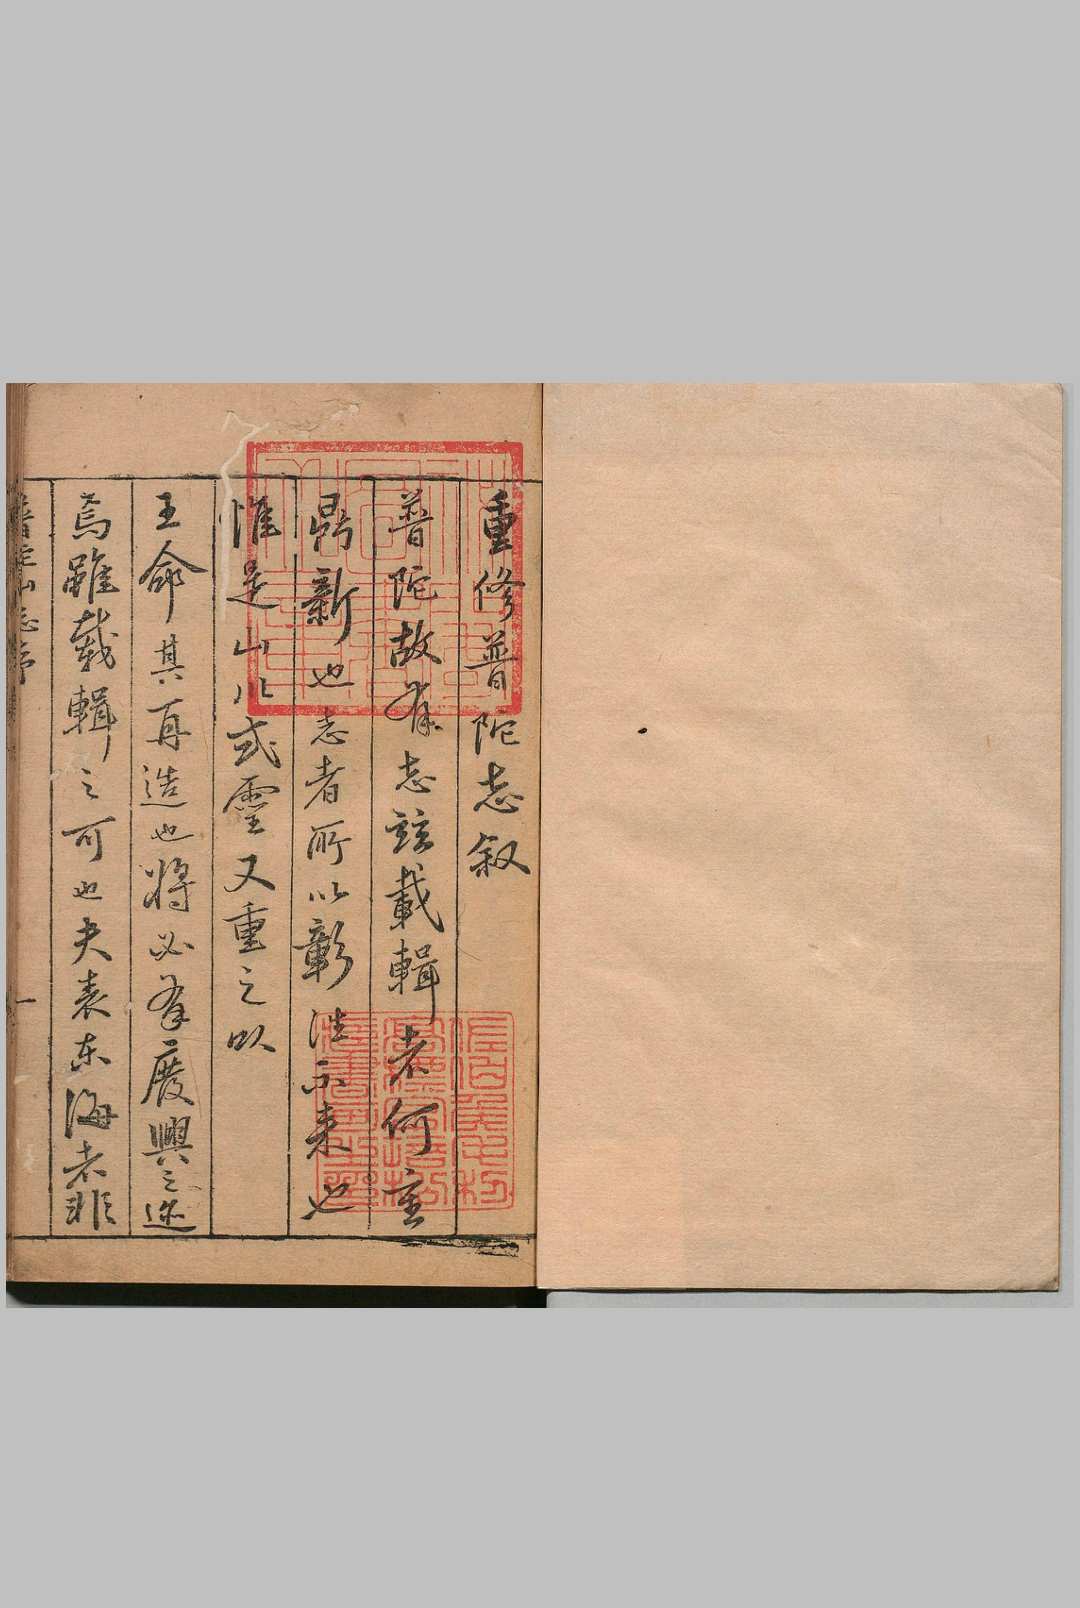 重修普陀志叙
普陀故有志玆載輯者何重
鼎新也志者所以彰往示来也
惟是山以式靈又重之以
王命其再造也將必有廢興之迹
焉雖載輯之可也夫表东海者非
普陀山志序
一